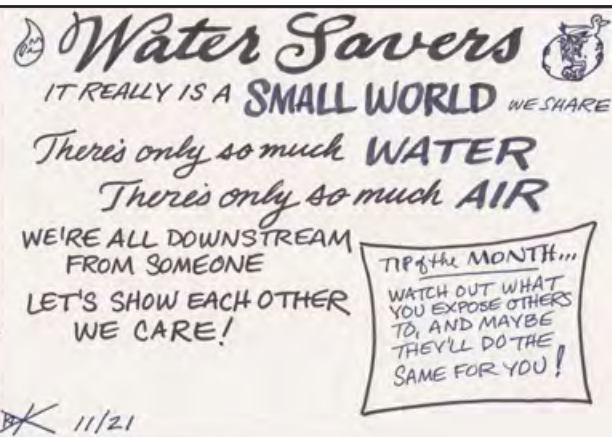 Water Savers
IT REALLY IS A SMALL WORLD WE SHARE
There's only so much WATER
There's only so much AIR
WE'RE ALL DOWNSTREAM
FROM SOMEONE
LET'S SHOW EACH OTHER
WE CARE!
TIP of the MONTH...
WATCH OUT WHAT
YOU EXPOSE OTHERS
TO, AND MAYBE
THEY'LL DO THE
SAME FOR YOU!
11/21